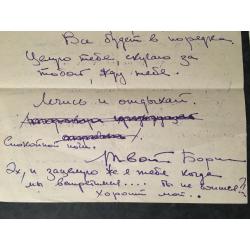 Все будет в порядке.
Целую тебя, скучаю за
тобой, жду тебя.
Лечись и отдыхай.
Спокойной ночи.
Твой Борис
Эх, и зацелую же я тебя когда
мы встретимся.... Ты не боишся?
Хороший мой..